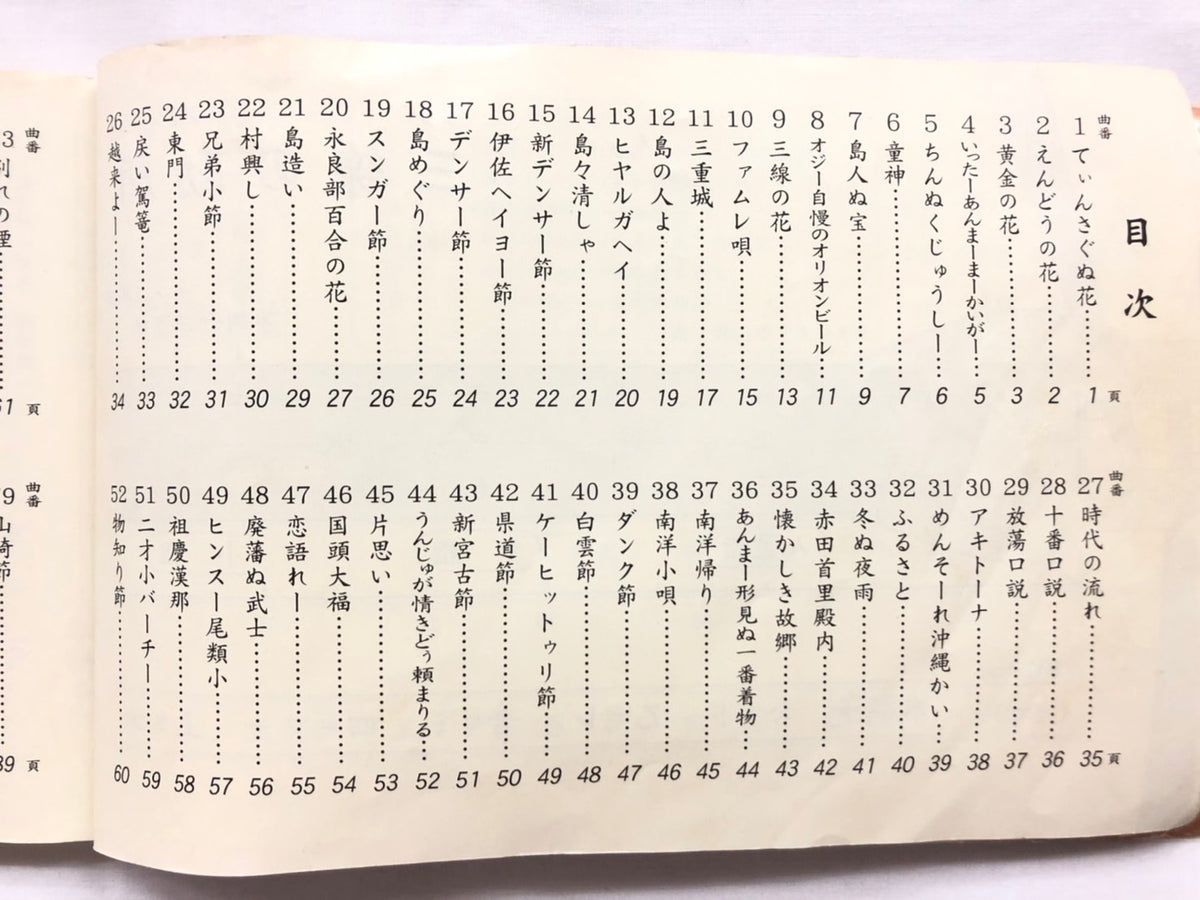 目次
曲番
1 てぃんさぐぬ花 1 頁
2 えんどうの花 2
3 黄金の花 3
4 いったーあんまーまーかいがー 5
5 ちんぬくじゅうしー 6
6 童神 7
7 島人ぬ宝 9
8 オジー自慢のオリオンビール 11
9 三線の花 13
10 ファムレ唄 15
11 三重城 17
12 島の人よ 19
13 ヒヤルガヘイ 20
14 島々清しゃ 21
15 新デンサー節 22
16 伊佐ヘイヨー節 23
17 デンサー節 24
18 島めぐり 25
19 スンガー節 26
20 永良部百合の花 27
21 島造い 29
22 村興し 30
23 兄弟小節 31
24 東門 32
25 戻い駕篭 33
26 越来よー 34
曲番
27 時代の流れ 35 頁
28 十番口説 36
29 放蕩口説 37
30 アキトーナ 38
31 めんそーれ沖縄かい 39
32 ふるさと 40
33 冬ぬ夜雨 41
34 赤田首里殿内 42
35 懐かしき故郷 43
36 あんまー形見ぬ一番着物 44
37 南洋帰り 45
38 南洋小唄 46
39 ダンク節 47
40 白雲節 48
41 ケーヒットゥリ節 49
42 県道節 50
43 新宮古節 51
44 うんじゅが情きどぅ頼まりる 52
45 片思い 53
46 国頭大福 54
47 恋語れー 55
48 廃藩ぬ武士 56
49 ヒンスー尾類小 57
50 祖慶漢那 58
51 二才小バーチー 59
52 物知り節 60
曲番
3 別れの煙 61 頁
曲番
9 山崎節 89 頁